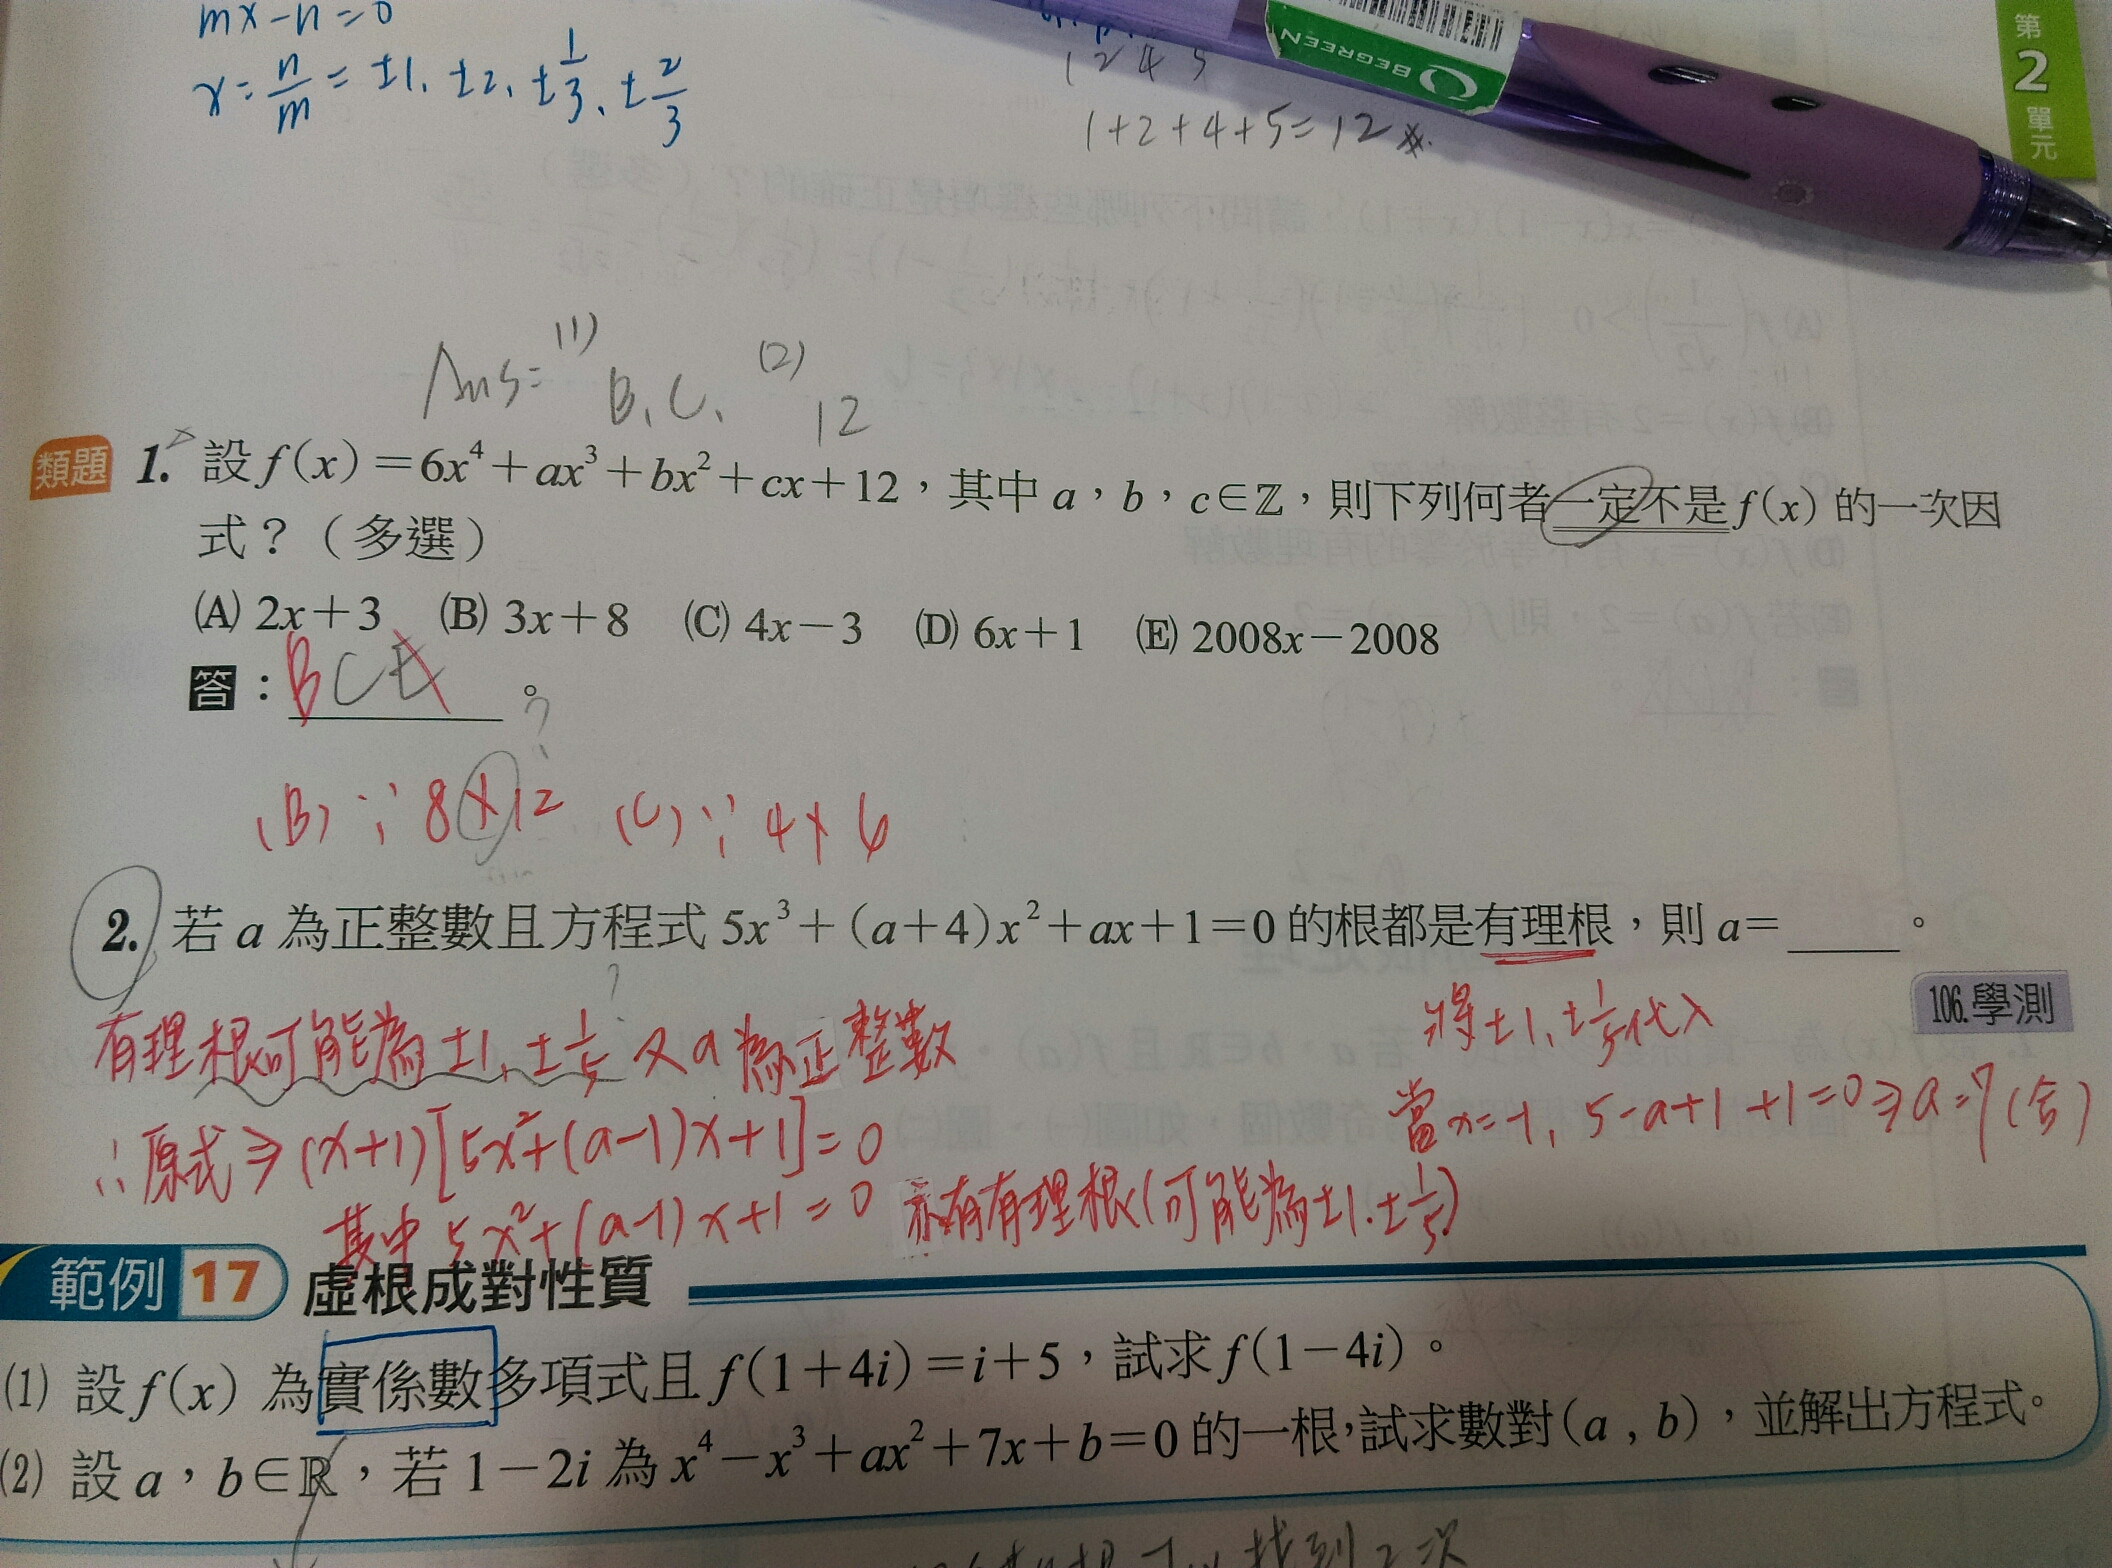 mx-n=0
x=n/m=±1, ±2, ±1/3, ±2/3
1 2 4 5
1+2+4+5=12
BEGREEN
第2單元
Ans= (1) B、C、 (2) 12
類題 1. 設f(x)=6x⁴+ax³+bx²+cx+12，其中a，b，c∈ℤ，則下列何者一定不是f(x)的一次因
式？（多選）
(A) 2x+3 (B) 3x+8 (C) 4x-3 (D) 6x+1 (E) 2008x-2008
答：BCE。
?
(B) ∵ 8∤12 (C) ∵ 4∤6
2. 若a為正整數且方程式5x³+(a+4)x²+ax+1=0的根都是有理根，則a=____。
106.學測
有理根可能為±1, ±1/5 又a為正整數
?
將±1、±1/5代入
當x=-1, 5-a+1+1=0⇒a=7(合)
∴原式⇒(x+1)[5x²+(a-1)x+1]=0
其中5x²+(a-1)x+1=0 亦有有理根(可能為±1.±1/5)
範例 17 虛根成對性質
(1) 設f(x)為實係數多項式且f(1+4i)=i+5，試求f(1-4i)。
(2) 設a，b∈ℝ，若1-2i為x⁴-x³+ax²+7x+b=0的一根，試求數對(a , b)，並解出方程式。
找到2次